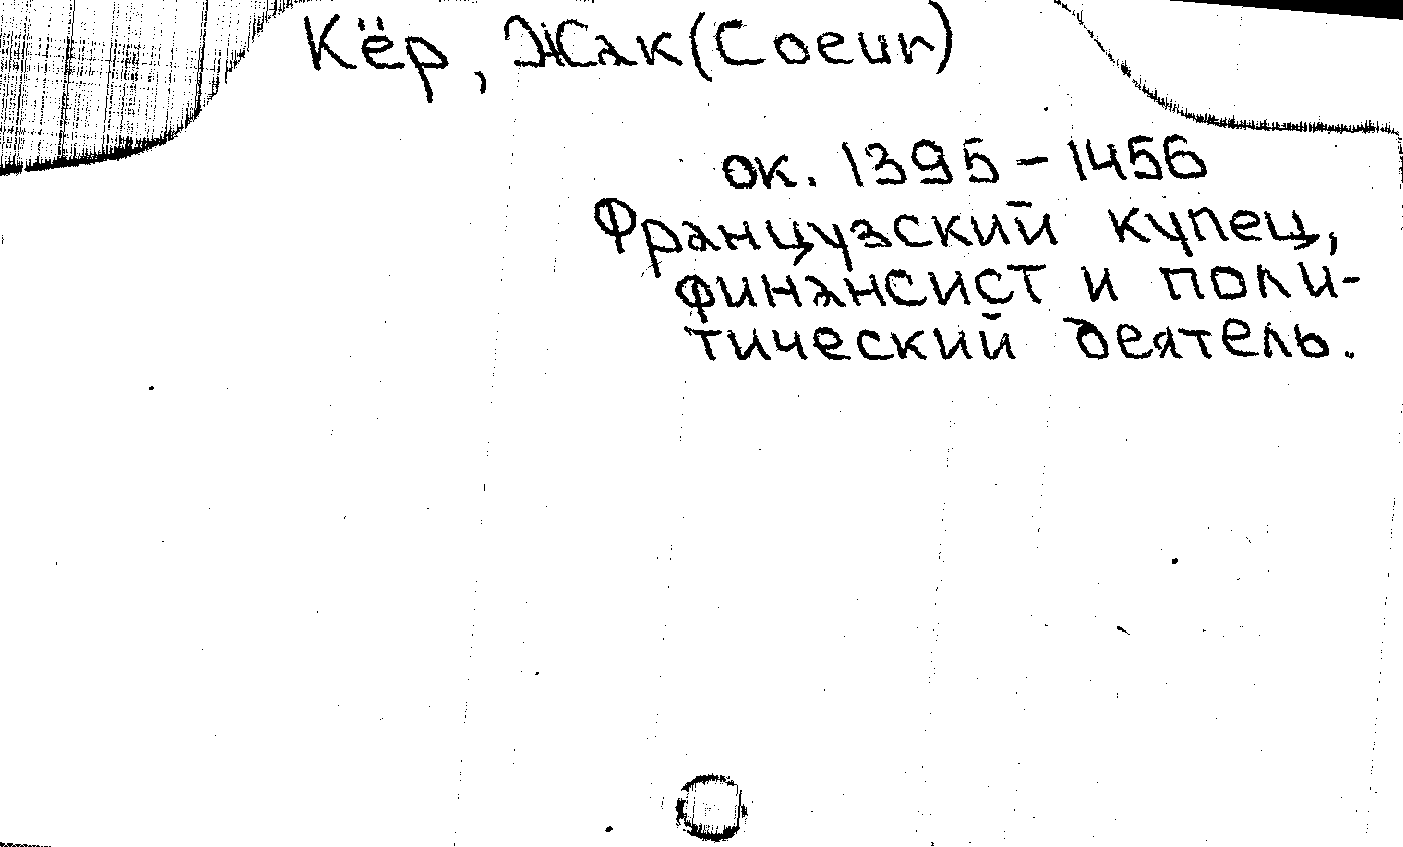 Кёр, Жак (Coeur)
ок. 1395 - 1456
Французский купец,
финансист и поли-
тический деятель.